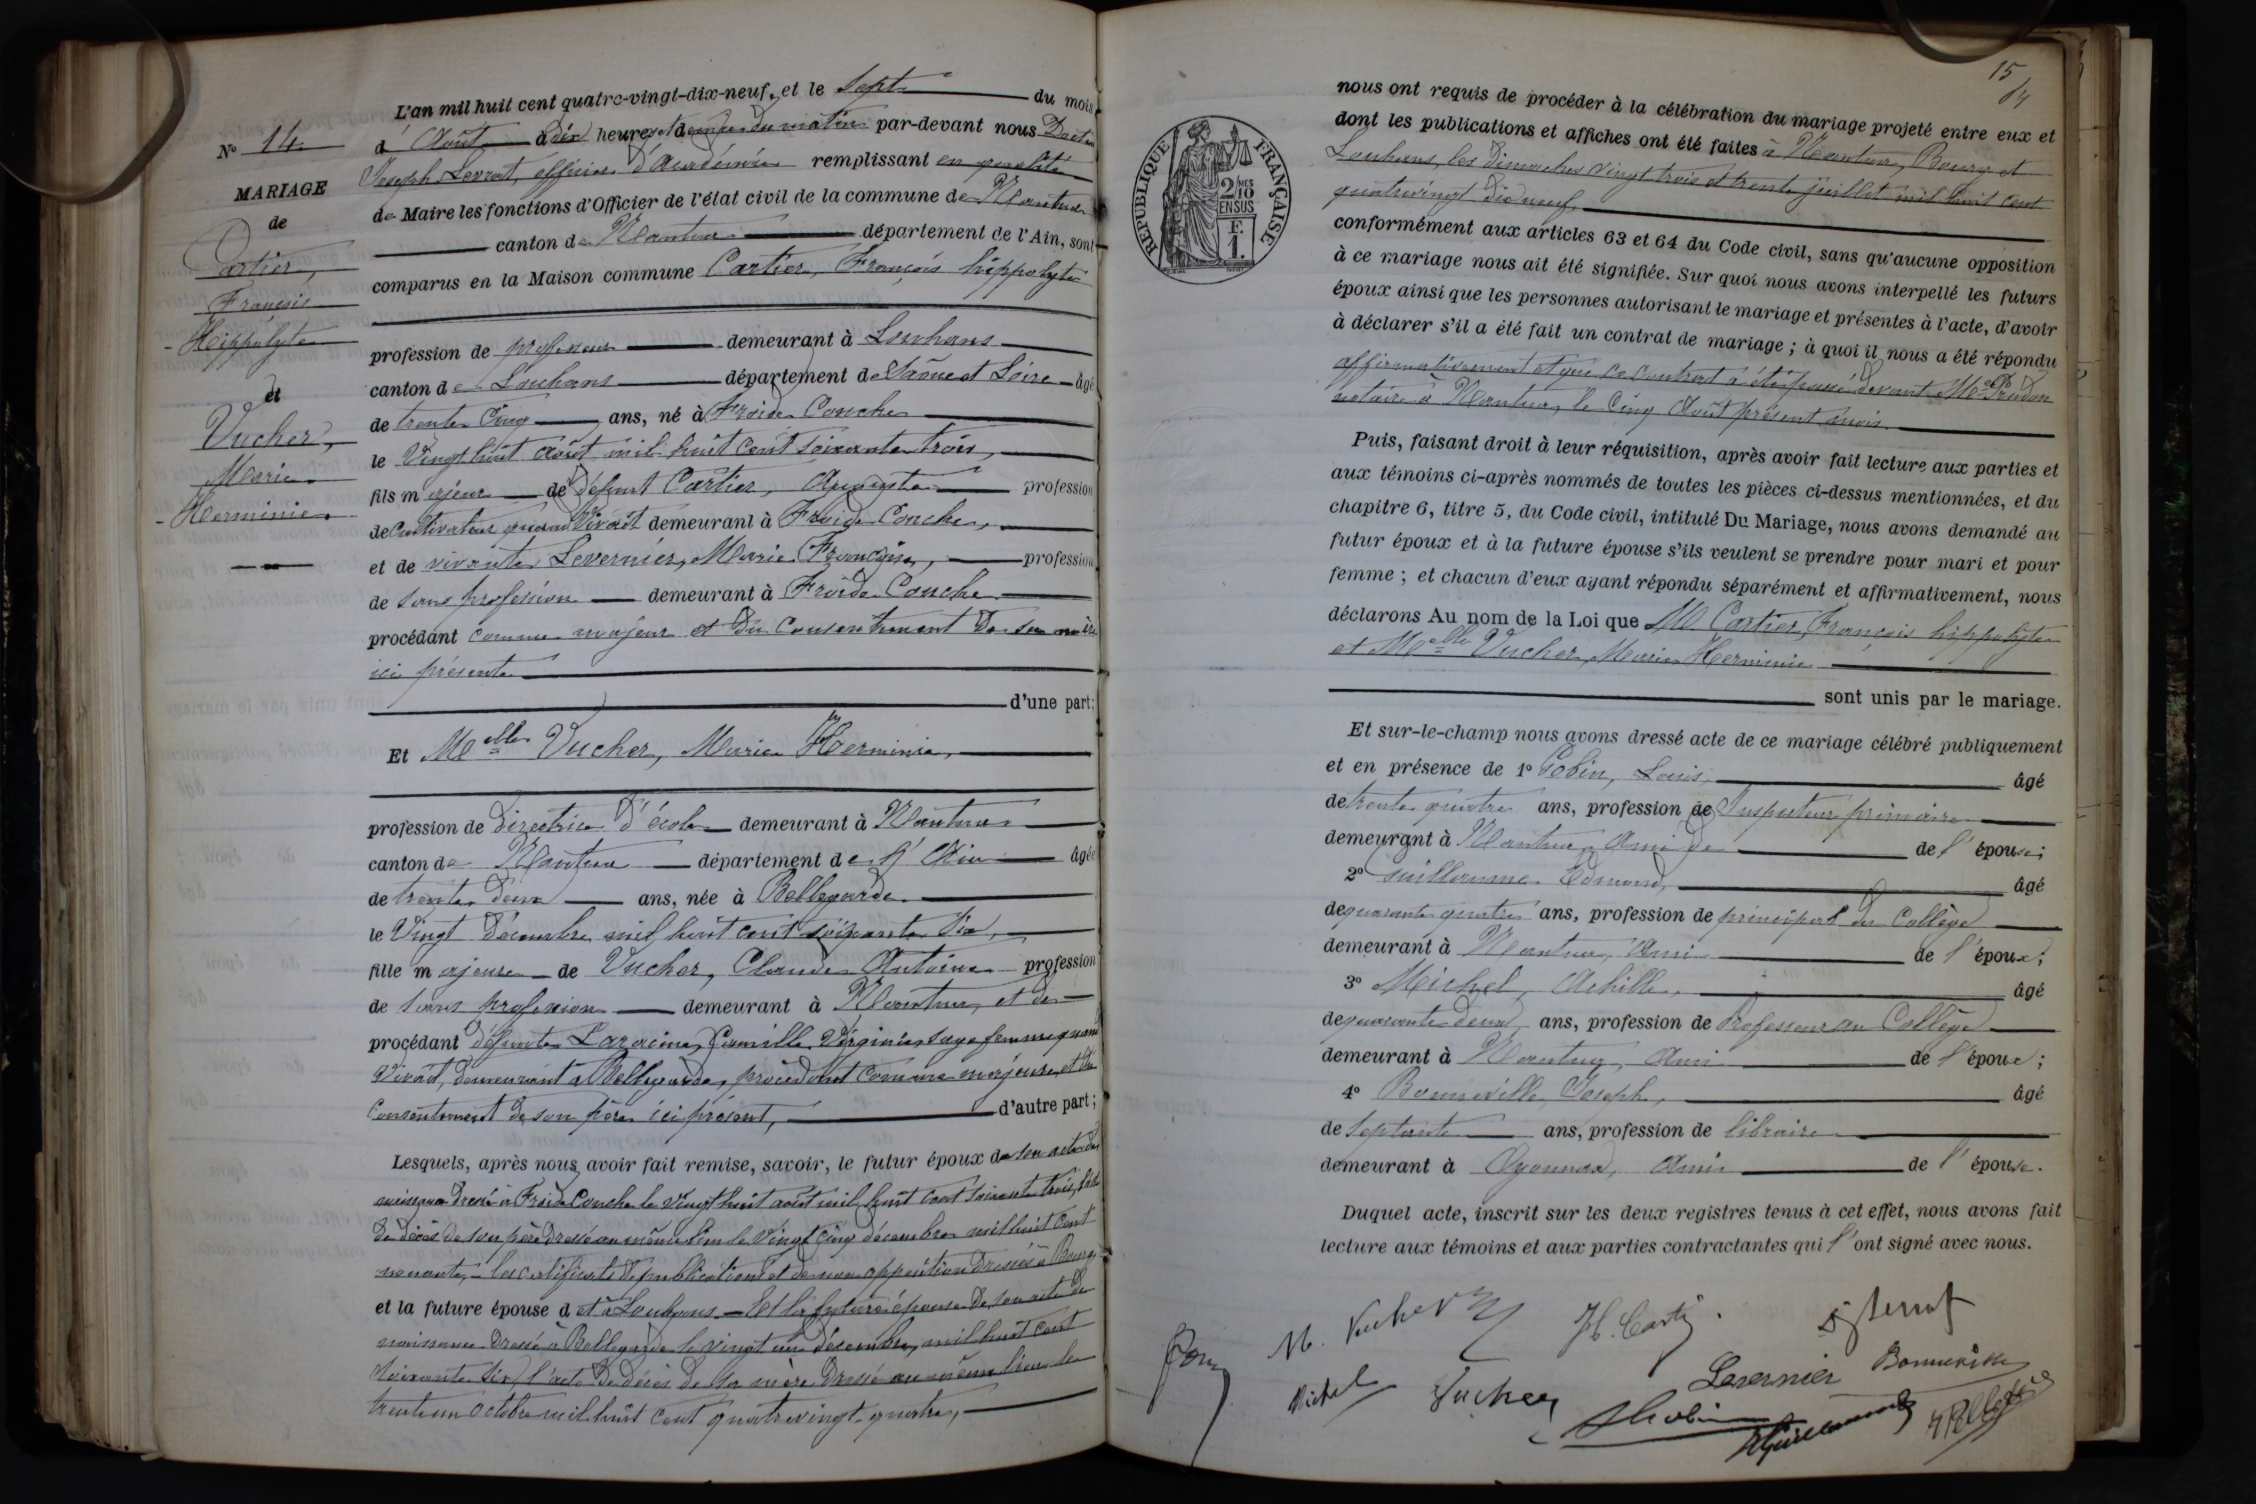 N° 14
MARIAGE
de
Cartier,
François
Hippolyte
et
Vucher,
Marie
Herminie.
L'an mil huit cent quatre-vingt-dix-neuf, et le Sept du mois
d' Août à dix heures et demie du matin par-devant nous Docteur
Joseph Levrat, officier d'Académie remplissant en qualité
de Maire les fonctions d'Officier de l'état civil de la commune de Nantua
canton de Nantua département de l'Ain, sont
comparus en la Maison commune Cartier, François hippolyte
profession de professeur demeurant à Louhans
canton de Louhans département de Saône et Loire âgé
de trente cinq ans, né à Froide Conche
le Vingt huit août mil huit cent soixante trois,
fils majeur de défunt Cartier, Auguste profession
de Cultivateur quand vivait demeurant à Froide Conche,
et de vivante Levernier, Marie Françoise, profession
de sans profession demeurant à Froide Conche
procédant comme majeur et du consentement de sa mère
ici présente
d'une part;
Et Melle Vucher, Marie Herminie,
profession de Directrice d'école demeurant à Nantua
canton de Nantua département de l'Ain âgée
de trente deux ans, née à Bellegarde
le Vingt décembre mil huit cent soixante six,
fille majeure de Vucher, Claude Antoine profession
de sans profession demeurant à Nantua, et de
procédant défunte Laracine, Camille Virginie sage femme quand
vivait, demeurant à Bellegarde, procédant comme majeure et du
consentement de son père ici présent, d'autre part;
Lesquels, après nous avoir fait remise, savoir, le futur époux de son acte de
naissance dressé à Froide Conche le vingt huit août mil huit cent soixante trois, l'acte
de décès de son père dressé au même lieu le vingt cinq décembre mil huit cent
nonante, les certificats de publications et de non opposition dressés à Bourg
et la future épouse d et à Louhans. Et la future épouse de son acte de
naissance dressé à Bellegarde le vingt un décembre mil huit cent
soixante six, l'acte de décès de sa mère dressé au même lieu le
trente un octobre mil huit cent quatre vingt quatre,
15
14
RÉPUBLIQUE FRANÇAISE
2/10 MES
EN SUS
F.
1.
nous ont requis de procéder à la célébration du mariage projeté entre eux et
dont les publications et affiches ont été faites à Nantua, Bourg et
Louhans, les dimanches vingt trois et trente juillet mil huit cent
quatrevingt dix neuf
conformément aux articles 63 et 64 du Code civil, sans qu'aucune opposition
à ce mariage nous ait été signifiée. Sur quoi nous avons interpellé les futurs
époux ainsi que les personnes autorisant le mariage et présentes à l'acte, d'avoir
à déclarer s'il a été fait un contrat de mariage; à quoi il nous a été répondu
affirmativement et que ce contrat a été passé devant Me Prudon
notaire à Nantua, le cinq Août présent mois
Puis, faisant droit à leur réquisition, après avoir fait lecture aux parties et
aux témoins ci-après nommés de toutes les pièces ci-dessus mentionnées, et du
chapitre 6, titre 5, du Code civil, intitulé Du Mariage, nous avons demandé au
futur époux et à la future épouse s'ils veulent se prendre pour mari et pour
femme; et chacun d'eux ayant répondu séparément et affirmativement, nous
déclarons Au nom de la Loi que M Cartier, François hippolyte
et Melle Vucher, Marie Herminie
sont unis par le mariage.
Et sur-le-champ nous avons dressé acte de ce mariage célébré publiquement
et en présence de 1° Gobin, Louis, âgé
de trente quatre ans, profession de Inspecteur primaire
demeurant à Nantua Ami de de l'épouse;
2° Guillaume Edmond, âgé
de quarante quatre ans, profession de principal du Collège
demeurant à Nantua, Ami de l'épouse;
3° Michel, Achille, âgé
de quarante deux ans, profession de Professeur au Collège
demeurant à Nantua, Ami de l'épouse;
4° Bonneville Joseph, âgé
de septante ans, profession de libraire
demeurant à Oyonnax, Ami de l'épouse.
Duquel acte, inscrit sur les deux registres tenus à cet effet, nous avons fait
lecture aux témoins et aux parties contractantes qui l'ont signé avec nous.
M. Vucher H. Cartier Dr J Levrat
Michel Vucher Levernier Bonneville
LGobin
EGuillaume